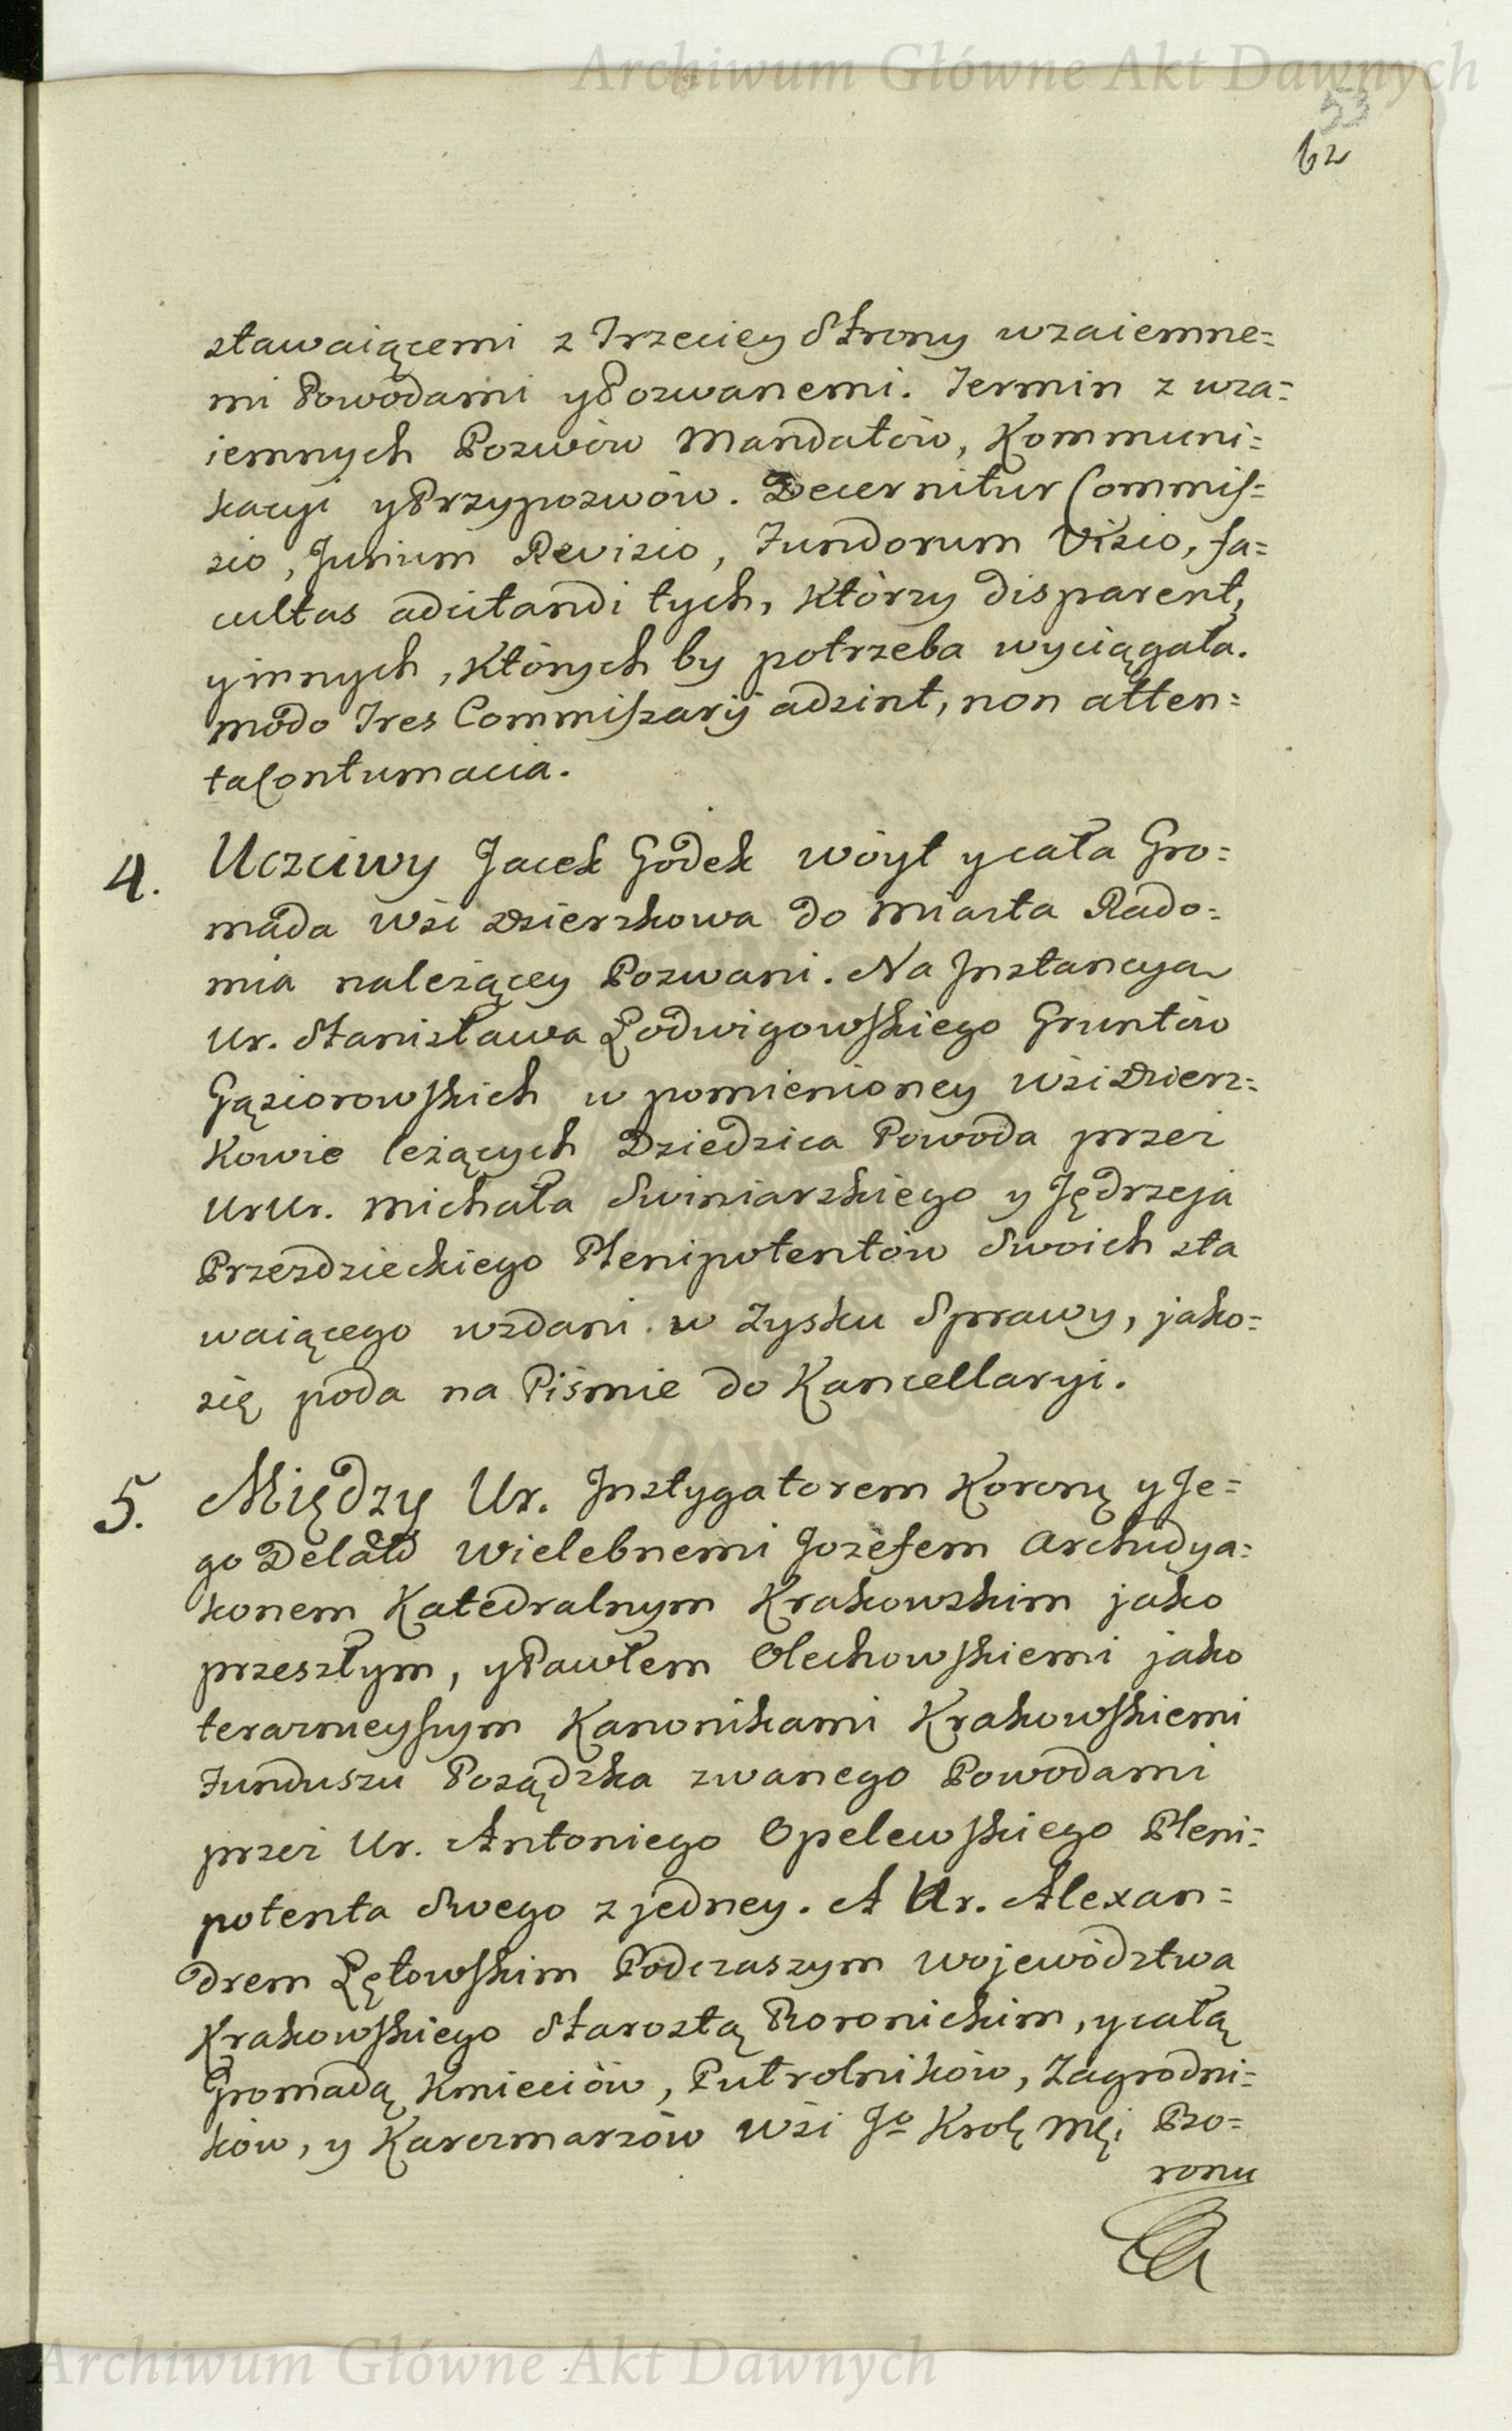 Archiwum Główne Akt Dawnych
53
62
stawaiącemi z Trzeciey Strony wzaiemne=
mi Powodami y Pozwanemi. Termin z wza=
iemnych Pozwów Mandatów, Kommuni=
kacyi y Przypozwów. Decernitur Commis=
sio, Jurium Revisio, Fundorum Visio, fa=
cultas adcitandi tych, którzy disparent,
y innych, których by potrzeba wyciągała.
modo Tres Commissarij adsint, non atten=
ta Contumacia.
4. Uczciwy Jacek Godek wóyt y cała Gro=
mada wsi Dzierzkowa do Miasta Rado=
mia należącey Pozwani. Na Instancya
Ur. Stanisława Lodwigowskiego Gruntów
Gąsiorowskich w pomienioney wsi Dzierz=
kowie leżących Dziedzica Powoda przez
Ur Ur. Michała Swiniarskiego y Jędrzeja
Przezdzieckiego Plenipotentów Swoich sta
waiącego wzdani w Zysku Sprawy, jako=
się poda na Piśmie do Kancellaryi.
5. Między Ur. Instygatorem Koronę y Je=
go Delato Wielebnemi Jozefem Archidya=
konem Katedralnym Krakowskim jako
przeszłym, y Pawłem Olechowskiemi jako
terazneyszym Kanonikami Krakowskiemi
Funduszu Posądzka zwanego Powodami
przez Ur. Antoniego Opelewskiego Pleni=
potenta Swego z jedney. A Ur. Alexan=
drem Łętowskim Podczaszym Województwa
Krakowskiego Starostą Rzoronickim, y całą
Gromadą Kmieciów, Putrolników, Zagrodni=
ków, y Karczmarzów wsi Jo Krolę Męi Rzo=
ronu
DAWNYCH
Archiwum Główne Akt Dawnych